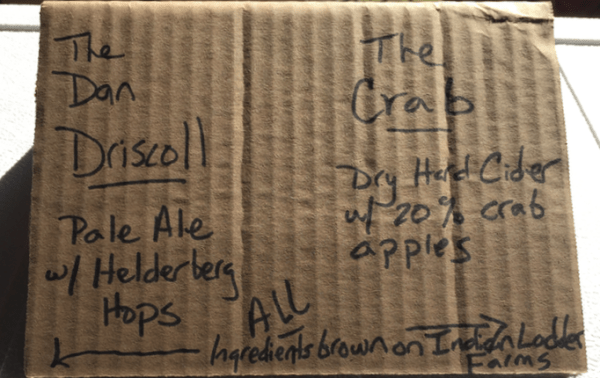 The
Dan
Driscoll
Pale Ale
w/ Helderberg
Hops
The
Crab
Dry Hard Cider
w/ 20% crab
apples
All
Ingredients brown on Indian Ladder
Farms